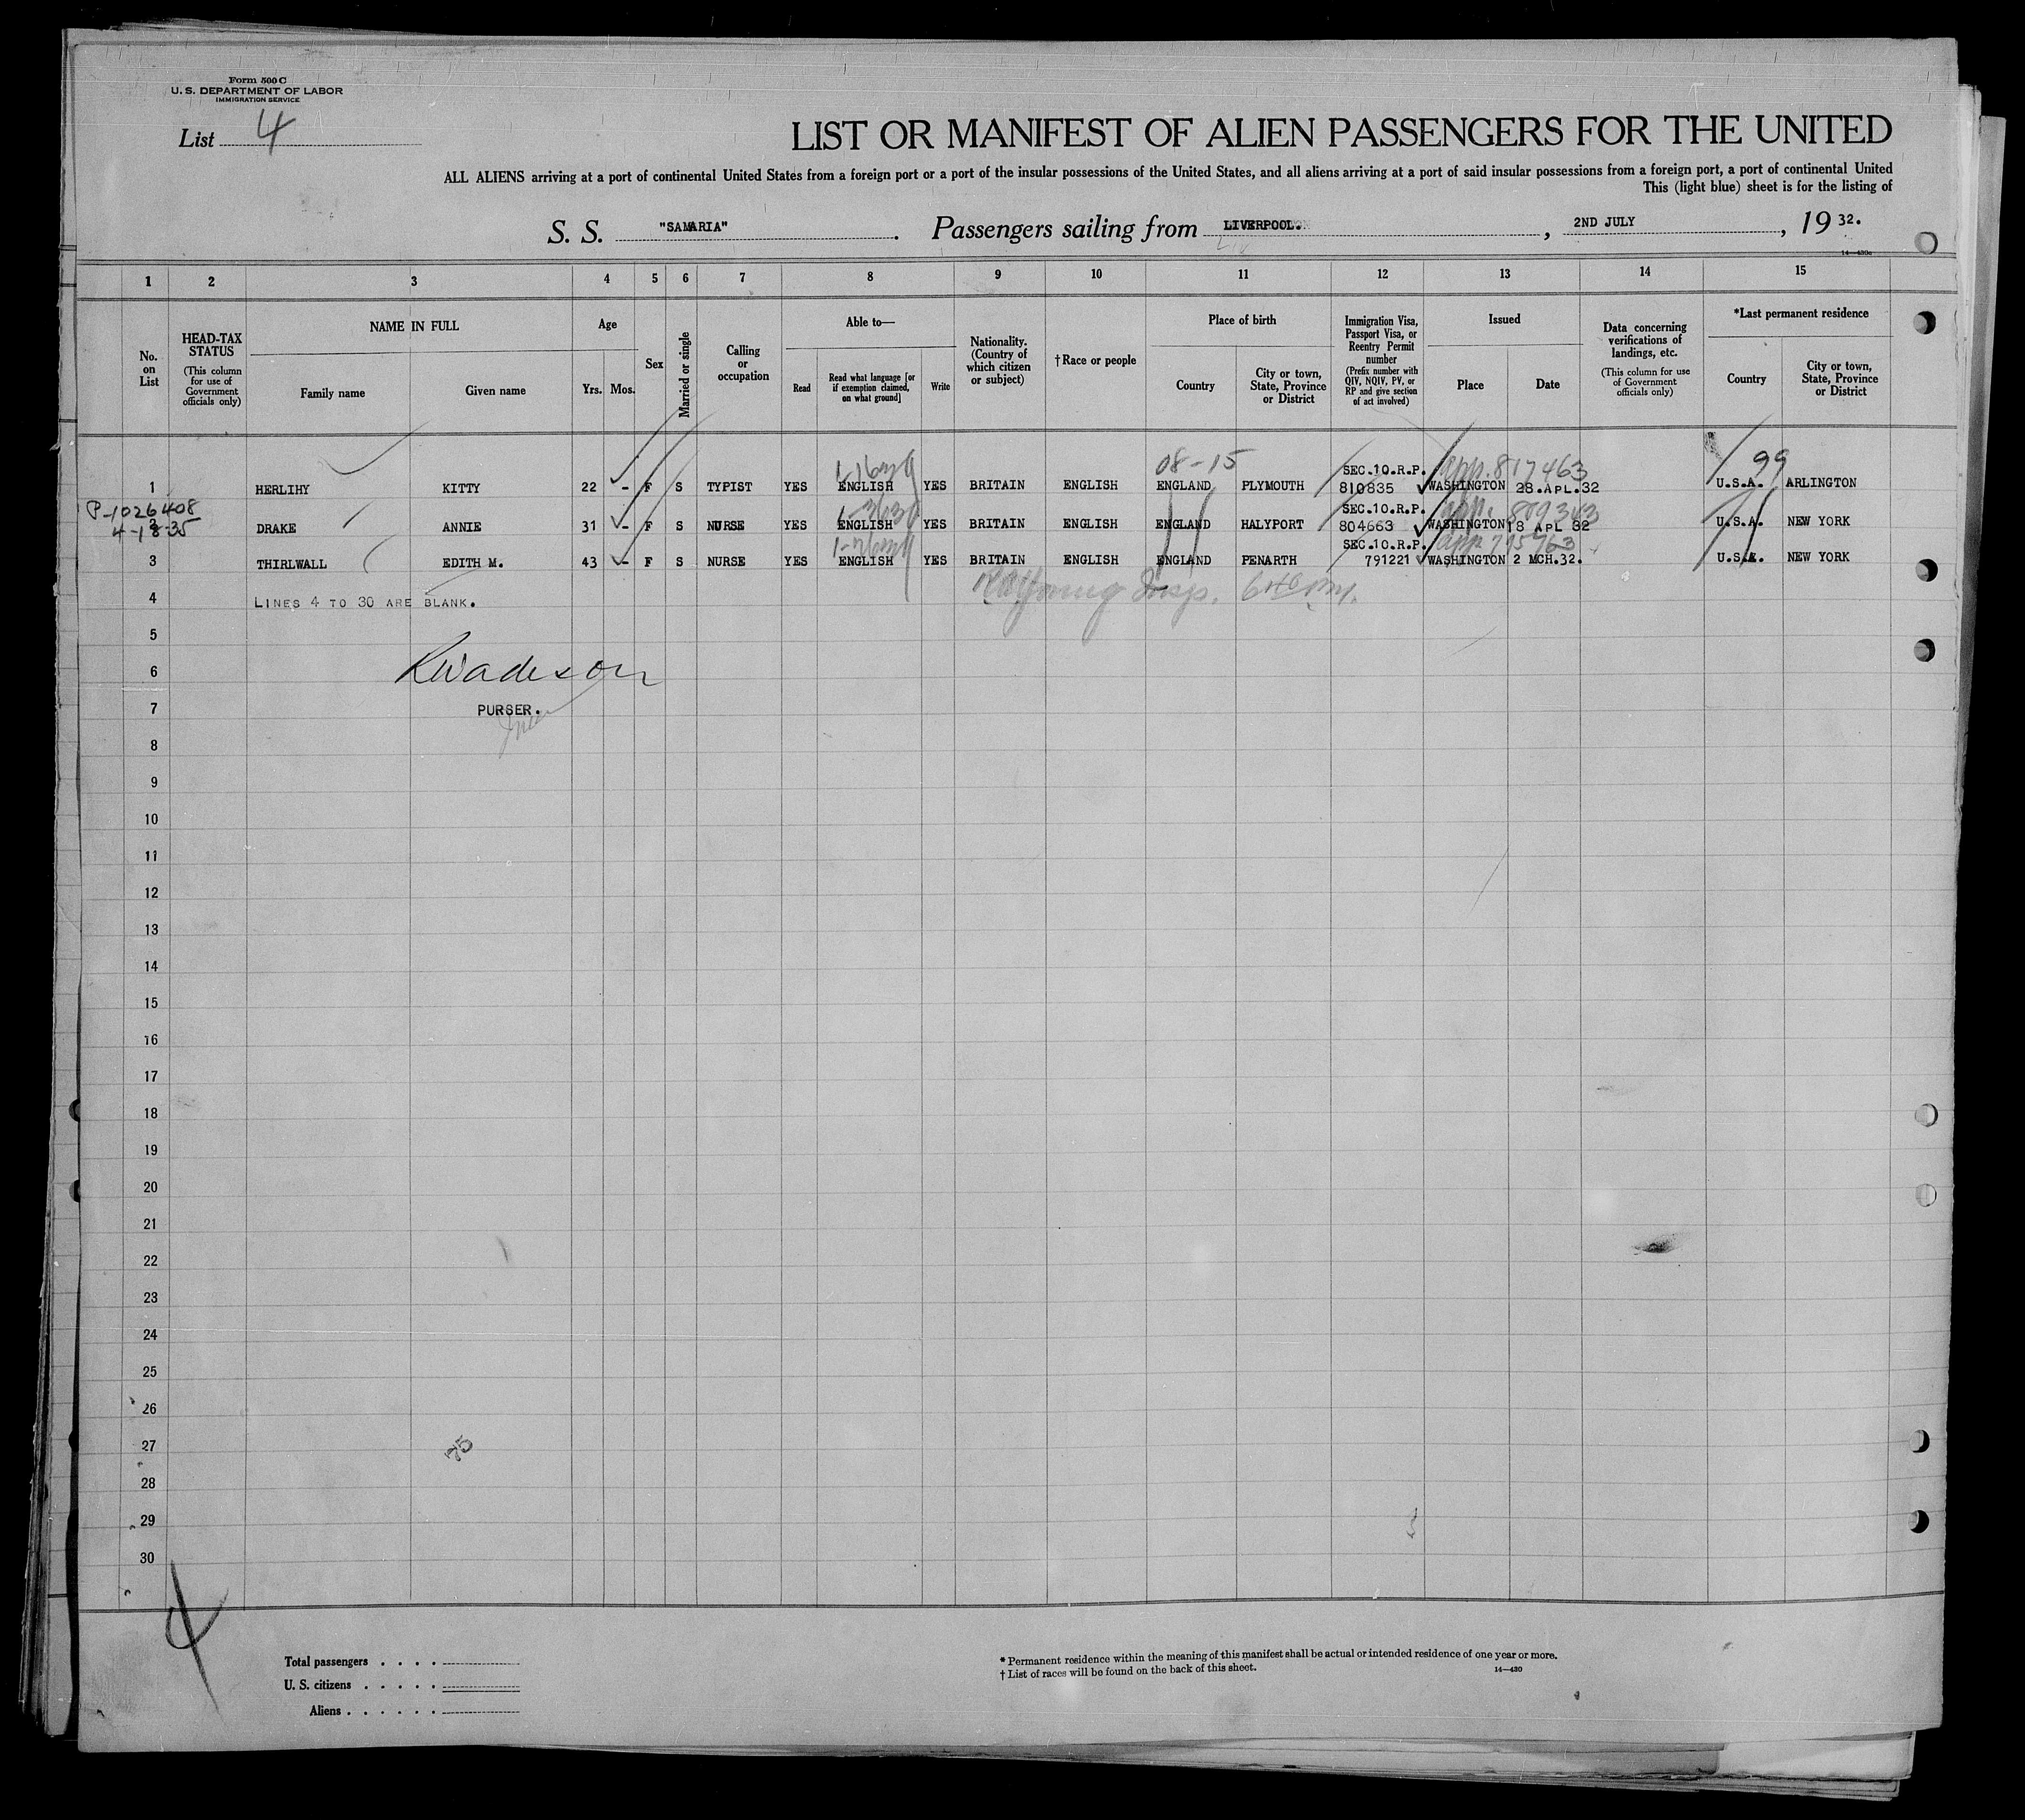 Form 500 C
U. S. DEPARTMENT OF LABOR
IMMIGRATION SERVICE
List 4
LIST OR MANIFEST OF ALIEN PASSENGERS FOR THE UNITED
ALL ALIENS arriving at a port of continental United States from a foreign port or a port of the insular possessions of the United States, and all aliens arriving at a port of said insular possessions from a foreign port, a port of continental United
This (light blue) sheet is for the listing of
S. S. "SAMARIA". Passengers sailing from LIVERPOOL. , 2ND JULY , 19 32.
14—430c
1 2 3 4 5 6 7 8 9 10 11 12 13 14 15
No. on List
HEAD-TAX STATUS (This column for use of Government officials only)
NAME IN FULL
Family name Given name
Age
Yrs. Mos.
Sex
Married or single
Calling or occupation
Able to—
Read Read what language [or if exemption claimed, on what ground] Write
Nationality. (Country of which citizen or subject)
†Race or people
Place of birth
Country City or town, State, Province or District
Immigration Visa, Passport Visa, or Reentry Permit number (Prefix number with QIV, NQIV, PV, or RP and give section of act involved)
Issued
Place Date
Data concerning verifications of landings, etc. (This column for use of Government officials only)
*Last permanent residence
Country City or town, State, Province or District
08-15 SEC.10.R.P. app. 817463 99
1 HERLIHY KITTY 22 - F S TYPIST YES ENGLISH YES BRITAIN ENGLISH ENGLAND PLYMOUTH 810835 WASHINGTON 28.APL.32 U.S.A. ARLINGTON
P-1026408 SEC.10.R.P. app.
4-18-35
2 DRAKE ANNIE 31 - F S NURSE YES ENGLISH YES BRITAIN ENGLISH ENGLAND HALYPORT 804663 WASHINGTON 18 APL 32 U.S.A. NEW YORK
SEC.10.R.P. app
3 THIRLWALL EDITH M. 43 - F S NURSE YES ENGLISH YES BRITAIN ENGLISH ENGLAND PENARTH 791221 WASHINGTON 2 MCH.32. U.S.A. NEW YORK
4 LINES 4 TO 30 ARE BLANK. Insp.
5
6 RWadeson
7 PURSER.
8
9
10
11
12
13
14
15
16
17
18
19
20
21
22
23
24
25
26
27 75
28
29
30
4
Total passengers . . . .
U. S. citizens . . . . .
Aliens . . . . . .
* Permanent residence within the meaning of this manifest shall be actual or intended residence of one year or more.
† List of races will be found on the back of this sheet. 14—430